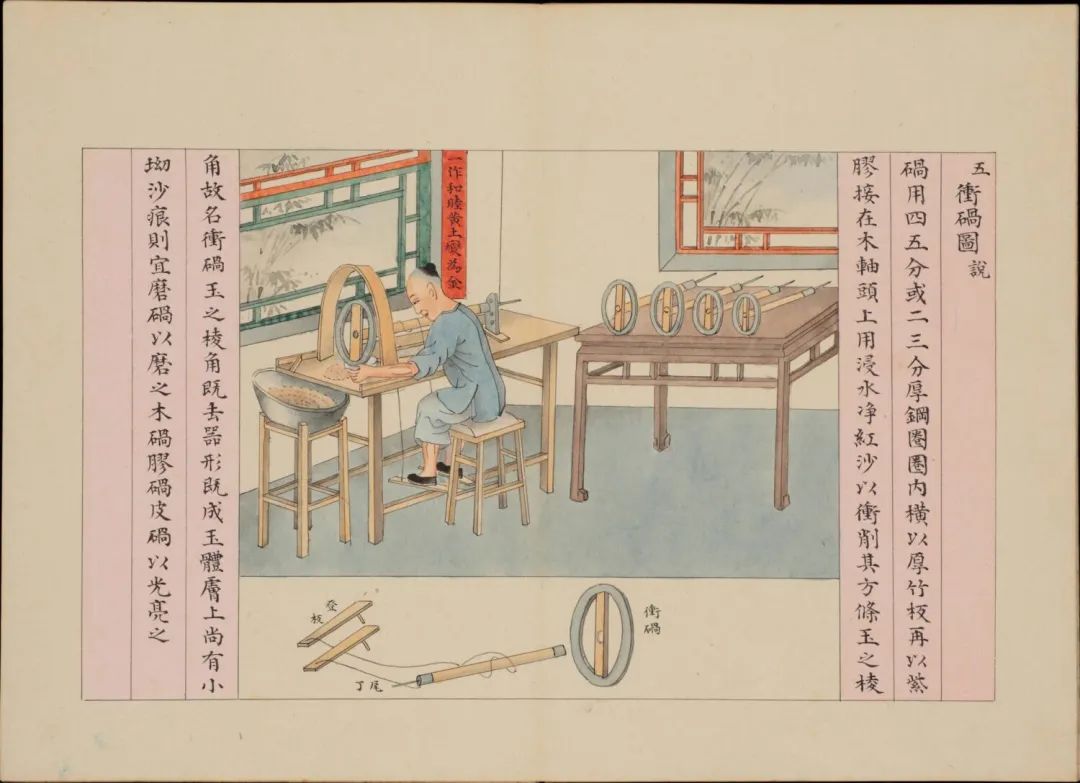 五 衝碢圖 說
碢用四五分或二三分厚鋼圈圈内橫以厚竹板再以紫
膠接在木軸頭上用浸水净紅沙以衝削其方條玉之棱
一作和睦黄土變為金
角故名衝碢玉之棱角既去器形既成玉體膚上尚有小
坳沙痕則宜磨碢以磨之木碢膠碢皮碢以光亮之
衝碢
登板
丁尾